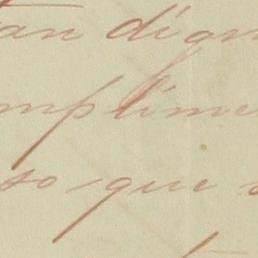 tan dign
mplime
so que